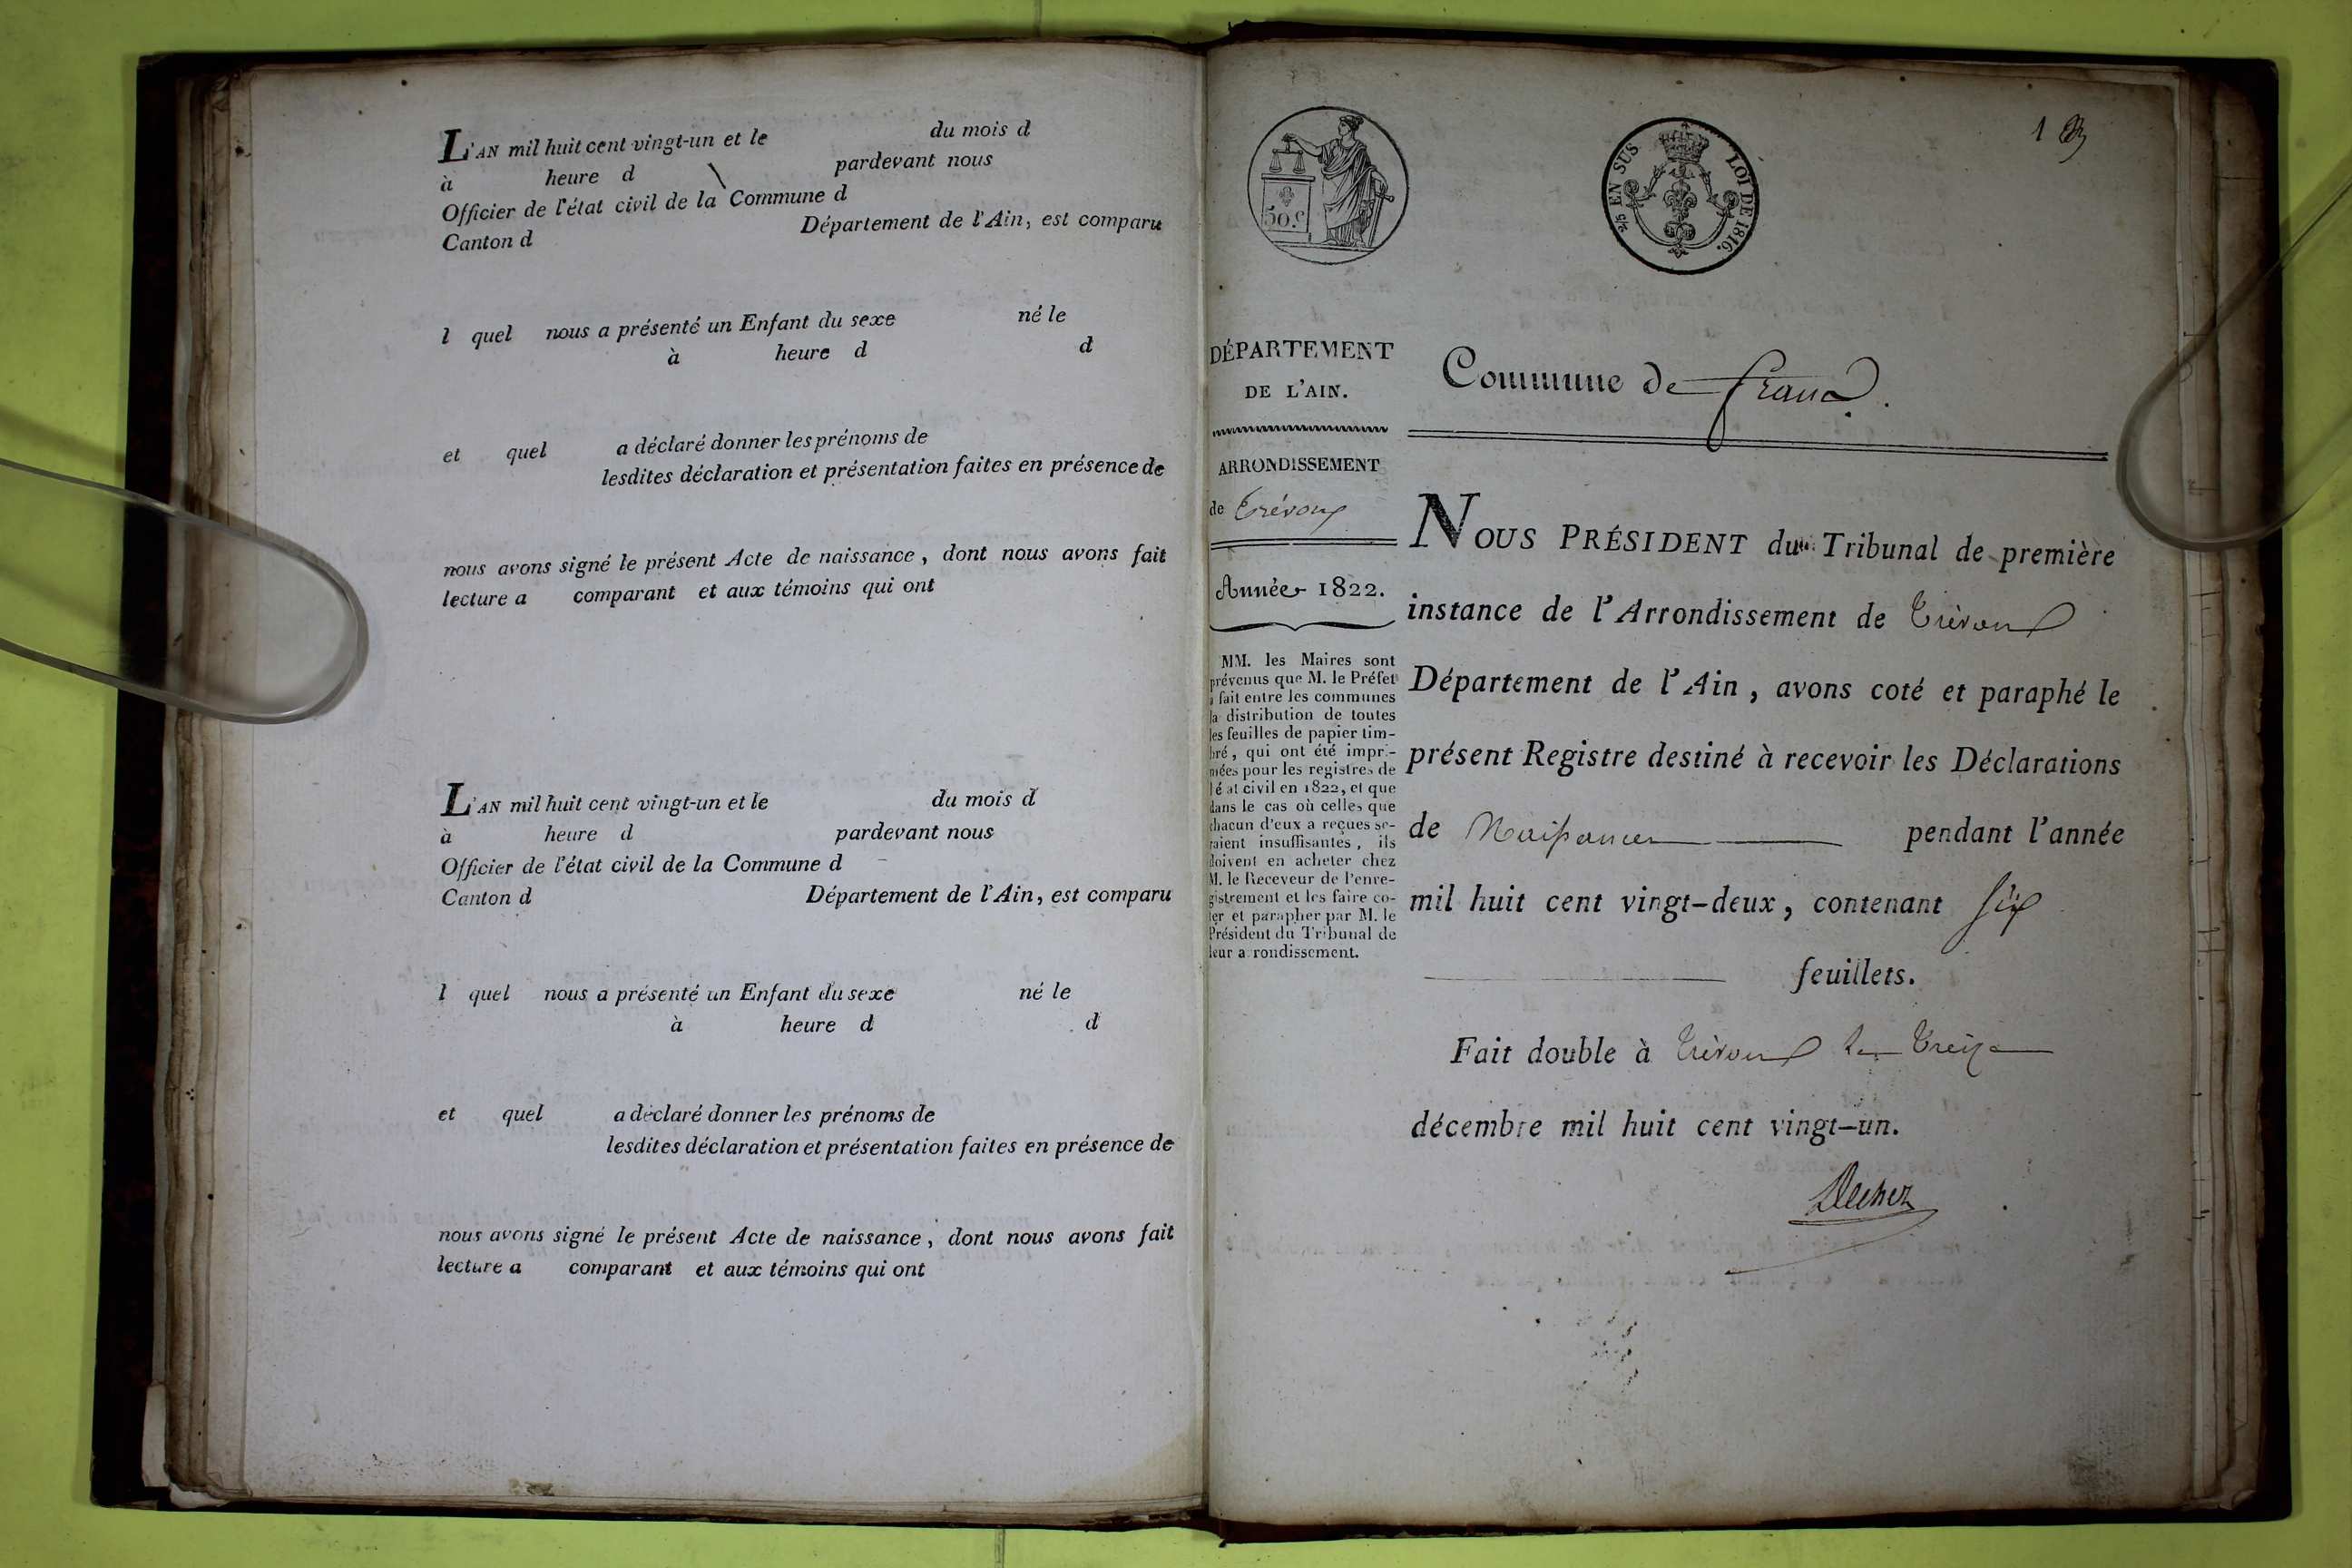 L'AN mil huit cent vingt-un et le du mois d
à heure d pardevant nous
Officier de l'état civil de la Commune d
Canton d Département de l'Ain, est comparu
l quel nous a présenté un Enfant du sexe né le
à heure d d
et quel a déclaré donner les prénoms de
lesdites déclaration et présentation faites en présence de
nous avons signé le présent Acte de naissance, dont nous avons fait
lecture a comparant et aux témoins qui ont
L'AN mil huit cent vingt-un et le du mois d
à heure d pardevant nous
Officier de l'état civil de la Commune d
Canton d Département de l'Ain, est comparu
l quel nous a présenté un Enfant du sexe né le
à heure d d
et quel a déclaré donner les prénoms de
lesdites déclaration et présentation faites en présence de
nous avons signé le présent Acte de naissance, dont nous avons fait
lecture a comparant et aux témoins qui ont
50.c
2/5 EN SUS LOI DE 1816.
1
DÉPARTEMENT
DE L'AIN.
ARRONDISSEMENT
de Trévoux
Année 1822.
MM. les Maires sont
prévenus que M. le Préfet
a fait entre les communes
la distribution de toutes
les feuilles de papier tim-
bré, qui ont été impri-
mées pour les registres de
l'état civil en 1822, et que
dans le cas où celles que
chacun d'eux a reçues se-
raient insuffisantes, ils
doivent en acheter chez
M. le Receveur de l'enre-
gistrement et les faire co-
ter et parapher par M. le
Président du Tribunal de
leur arrondissement.
Commune de franc
NOUS PRÉSIDENT du Tribunal de première
instance de l'Arrondissement de Trévoux
Département de l'Ain, avons coté et paraphé le
présent Registre destiné à recevoir les Déclarations
de Naissances pendant l'année
mil huit cent vingt-deux, contenant six
feuillets.
Fait double à Trévoux le treize
décembre mil huit cent vingt-un.